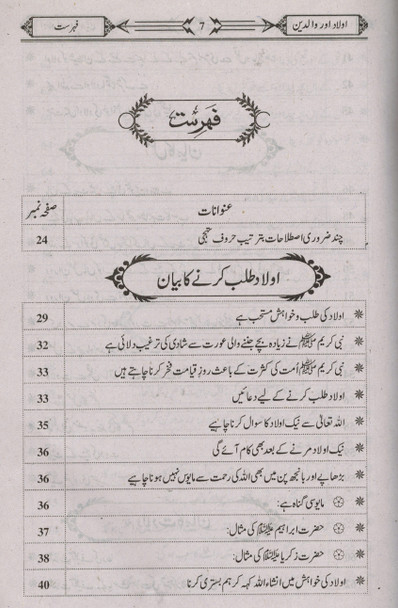 اولاد اور والدین 7 فہرست
فہرست
عنوانات صفحہ نمبر
چند ضروری اصطلاحات بترتیب حروف تہجی 24
اولاد طلب کرنے کا بیان
اولاد کی طلب و خواہش مستحب ہے 29
نبی کریم ﷺ نے زیادہ بچے جننے والی عورت سے شادی کی ترغیب دلائی ہے 32
نبی کریم ﷺ اُمت کی کثرت کے باعث روزِ قیامت فخر کرنا چاہتے ہیں 33
اولاد طلب کرنے کے لیے دعائیں 33
اللہ تعالیٰ سے نیک اولاد کا سوال کرنا چاہیے 35
نیک اولاد مرنے کے بعد بھی کام آئے گی 36
بڑھاپے اور بانجھ پن میں بھی اللہ کی رحمت سے مایوس نہیں ہونا چاہیے 36
مایوسی گناہ ہے: 36
حضرت ابراہیم علیہ السلام کی مثال: 37
حضرت زکریا علیہ السلام کی مثال: 38
اولاد کی خواہش میں انشاء اللہ کہہ کر ہم بستری کرنا 40